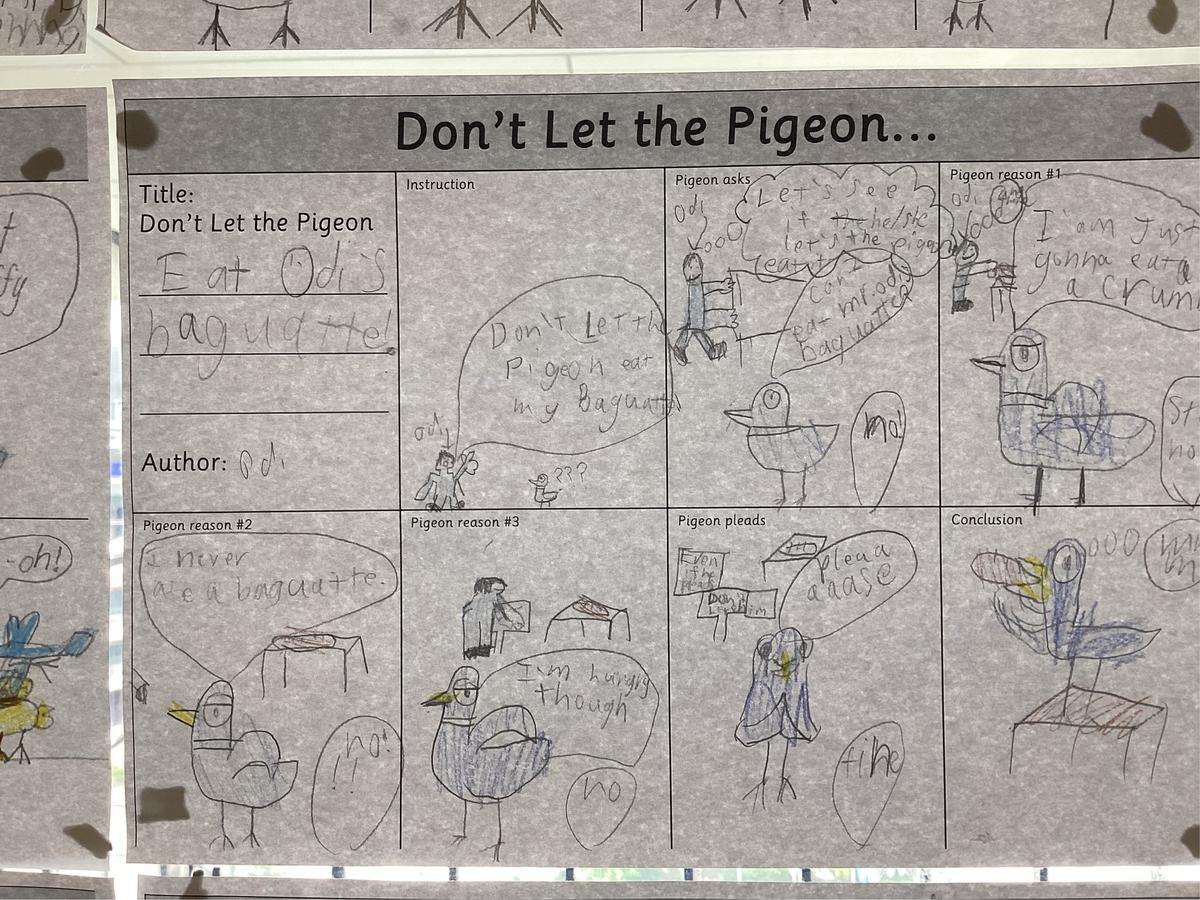 Don't Let the Pigeon...
Title:
Don't Let the Pigeon
Eat Odi's
baguatte!
Author: Odi
Instruction
Don't Let th
Pigeon eat
my Baguatt
odi
???
Pigeon asks
Odi
Let's see
if the he/she
let's the pigeon
eat it
can I
eat mr.odis
baguatte
no!
Pigeon reason #1
Odi
I am Just
gonna eat a
a crum
St
no
Pigeon reason #2
I never
ate a baguatte.
no!
!!
Pigeon reason #3
I'm hungry
though
no
Pigeon pleads
Even
if he
Don't
Let him
pleaa
aaase
fine
Conclusion
f
fy
-oh!